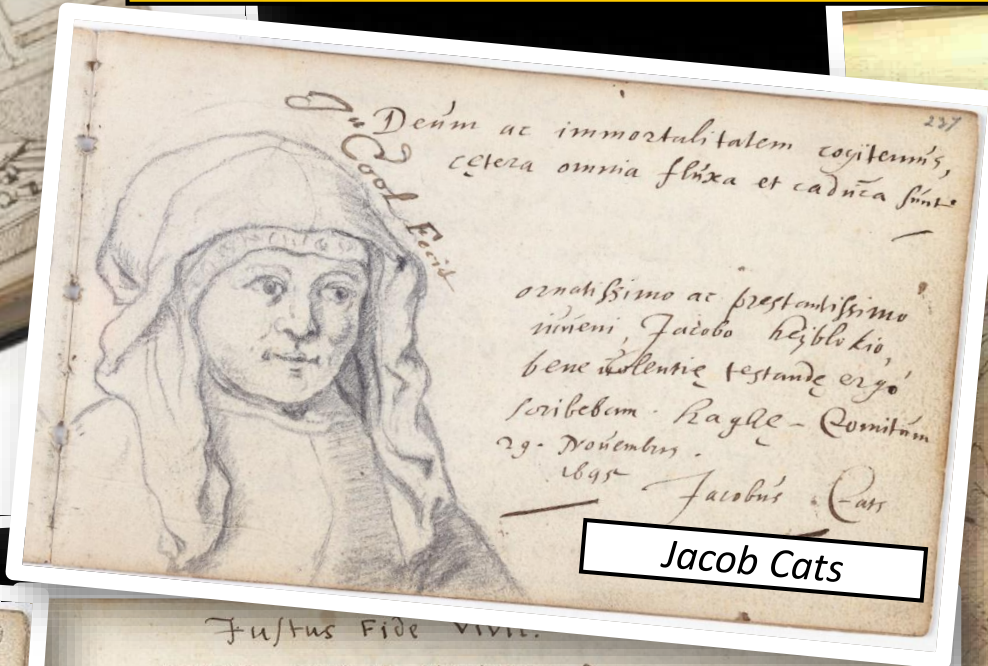 237
Deúm ac immortalitatem cogitemús,
cętera omnia flúxa et cadúca súnt
Cool Fecit
ornatissimo ac prestantissimo
iúveni, Jacobo heyblokio,
bene volentię testandę ergó
scribebam. haghę - Comitúm
29. Novembris.
Jacobús Cats
Jacob Cats
Justus Fide vivit.